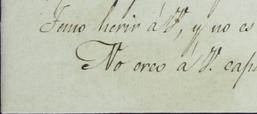 Temo herir á V., y no es
No creo á V. cap